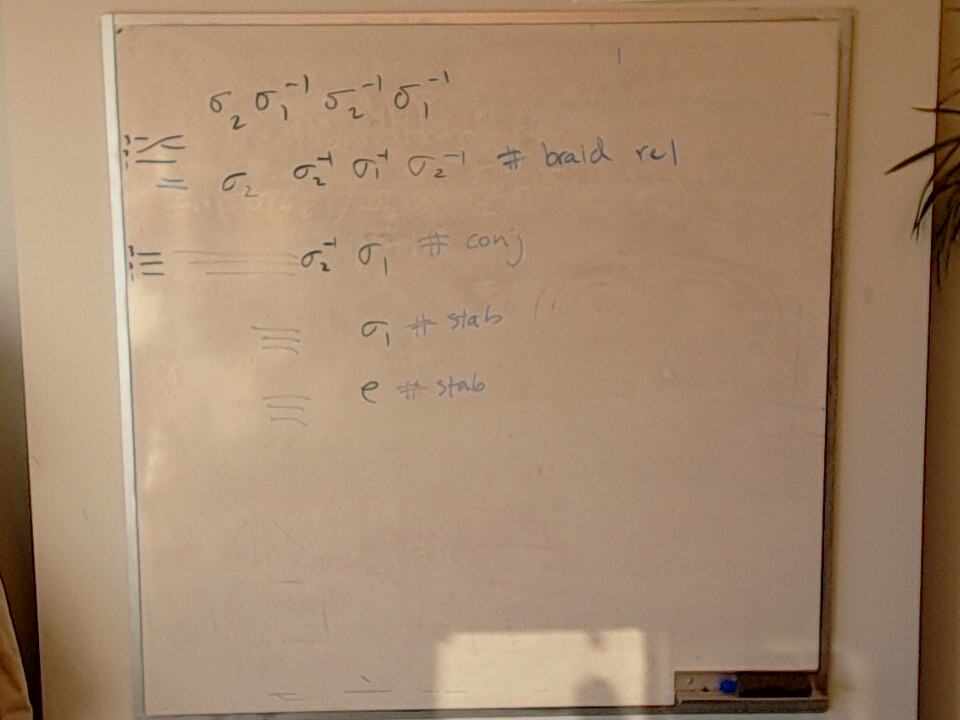 σ₂ σ₁⁻¹ σ₂⁻¹ σ₁⁻¹
= σ₂ σ₂⁻¹ σ₁⁻¹ σ₂⁻¹ # braid rel
σ₂⁻¹ σ₁ # conj
≡ σ₁ # stab
≡ e # stab